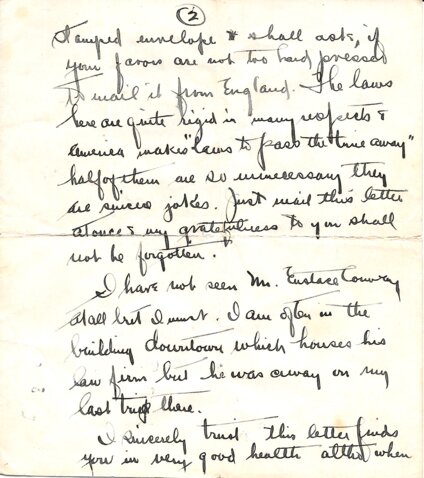 2
stamped envelope & shall ask, if
your favors are not too hard pressed
to mail it from England. The laws
here are quite rigid in many respects &
America makes "laws to pass the time away"
half of them are so unnecessary they
are jokes. Just mail this letter
at once & my gratefulness to you shall
not be forgotten.
I have not seen Mr. Eustace Conway
at all but I must. I am often in the
building downtown which houses his
law firm but he was away on my
last trip there.
I sincerely trust this letter finds
you in very good health altho when